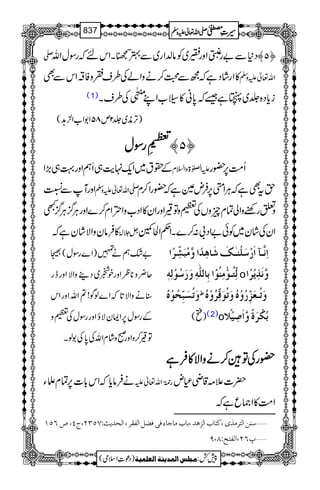 سیرتِ مصطفیٰ صلی اللہ تعالیٰ علیہ وسلم 837
﴿۵﴾ دنیا سے بے رغبتی اور فقیری کو مالداری سے بہتر سمجھنا۔ اس لئے کہ رسول اللہ صلی
اللہ تعالیٰ علیہ وسلم کا ارشاد ہے کہ مجھ سے محبت کرنے والے کی طرف فقر و فاقہ اس سے بھی
زیادہ جلدی پہنچتا ہے جیسے کہ پانی کا سیلاب اپنے منتہیٰ کی طرف۔ (1)
(ترمذی جلد ۲ ص ۵۸ ابواب الزہد)
﴿۵﴾ تعظیمِ رسول
امّت پر حضور علیہ الصلوٰۃ والسلام کے حقوق میں ایک نہایت ہی اہم اور بہت ہی بڑا
حق یہ بھی ہے کہ ہر امتی پر فرض عین ہے کہ حضور اکرم صلی اللہ تعالیٰ علیہ وسلم اور آپ سے نسبت و
تعلق رکھنے والی تمام چیزوں کی تعظیم و توقیر اور ان کا ادب و احترام کرے اور ہرگز ہرگز کبھی
ان کی شان میں کوئی بے ادبی نہ کرے۔ احکم الحاکمین جل جلالہ کا فرمان والا شان ہے کہ
اِنَّآ اَرْسَلْنٰكَ شَاهِدًا وَّمُبَشِّرًا بیشک ہم نے تمہیں (اے رسول) بھیجا
وَّنَذِيْرًا o لِّتُؤْمِنُوْا بِاللّٰهِ وَرَسُوْلِهٖ حاضر و ناظر اور خوشخبری دینے والا اور ڈر
وَتُعَزِّرُوْهُ وَتُوَقِّرُوْهُ ط وَتُسَبِّحُوْهُ سنانے والا تاکہ اے لوگو! تم اللہ اور اس
بُكْرَةً وَّاَصِيْلًا o (2) (فتح) کے رسول پر ایمان لاؤ اور رسول کی تعظیم و
توقیر کرو اور صبح و شام اللہ کی پاکی بولو۔
حضور کی توہین کرنے والا کافر ہے
حضرت علامہ قاضی عیاض رحمۃ اللہ تعالیٰ علیہ نے فرمایا ہے کہ اس بات پر تمام علماء
امت کا اجماع ہے کہ
سنن الترمذی، کتاب الزھد، باب ماجاء فی فضل الفقر، الحدیث:۲۳۵۷، ج۴، ص ۱۵۶
پ۲۶، الفتح:۸،۹
پیش کش: مجلس المدینة العلمیة (دعوتِ اسلامی)